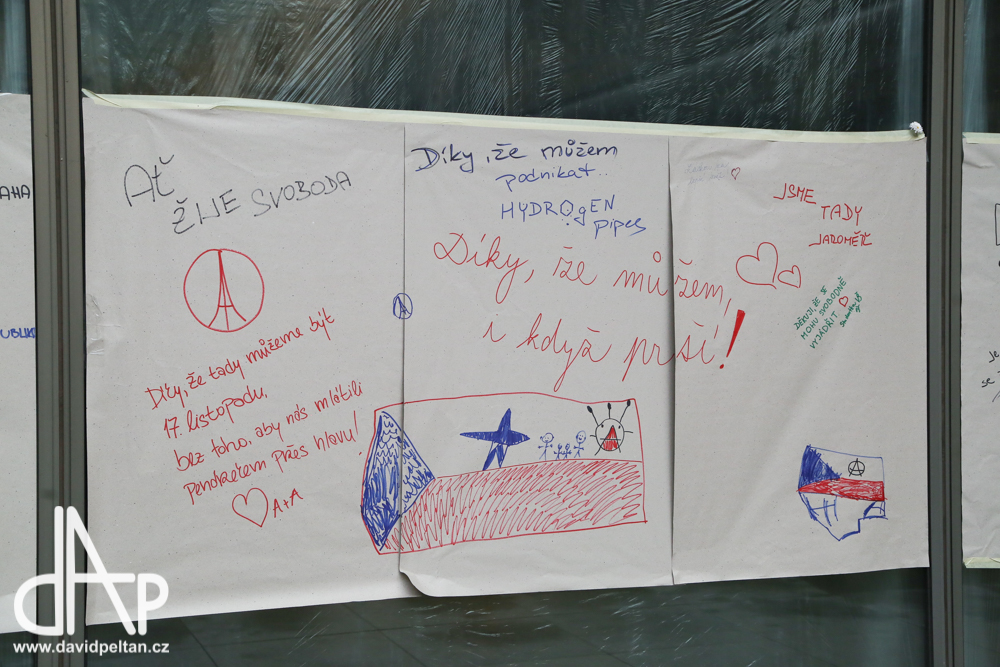 AHA
UBLIKA
Ať
ŽIJE SVOBODA
Díky, že tady můžeme být
17. listopadu,
bez toho, aby nás mlátili
pendrekem přes hlavu!
A+A
Díky, že můžem
podnikat..
HYDROgEN
pipes
Díky, že můžem,
i kdyä prší!
JSME
TADY
JAROMĚŘ
DĚKUJI, ŽE SE
MOHU SVOBODNĚ
VYJÁDŘIT
je
se
dAP
www.davidpeltan.cz